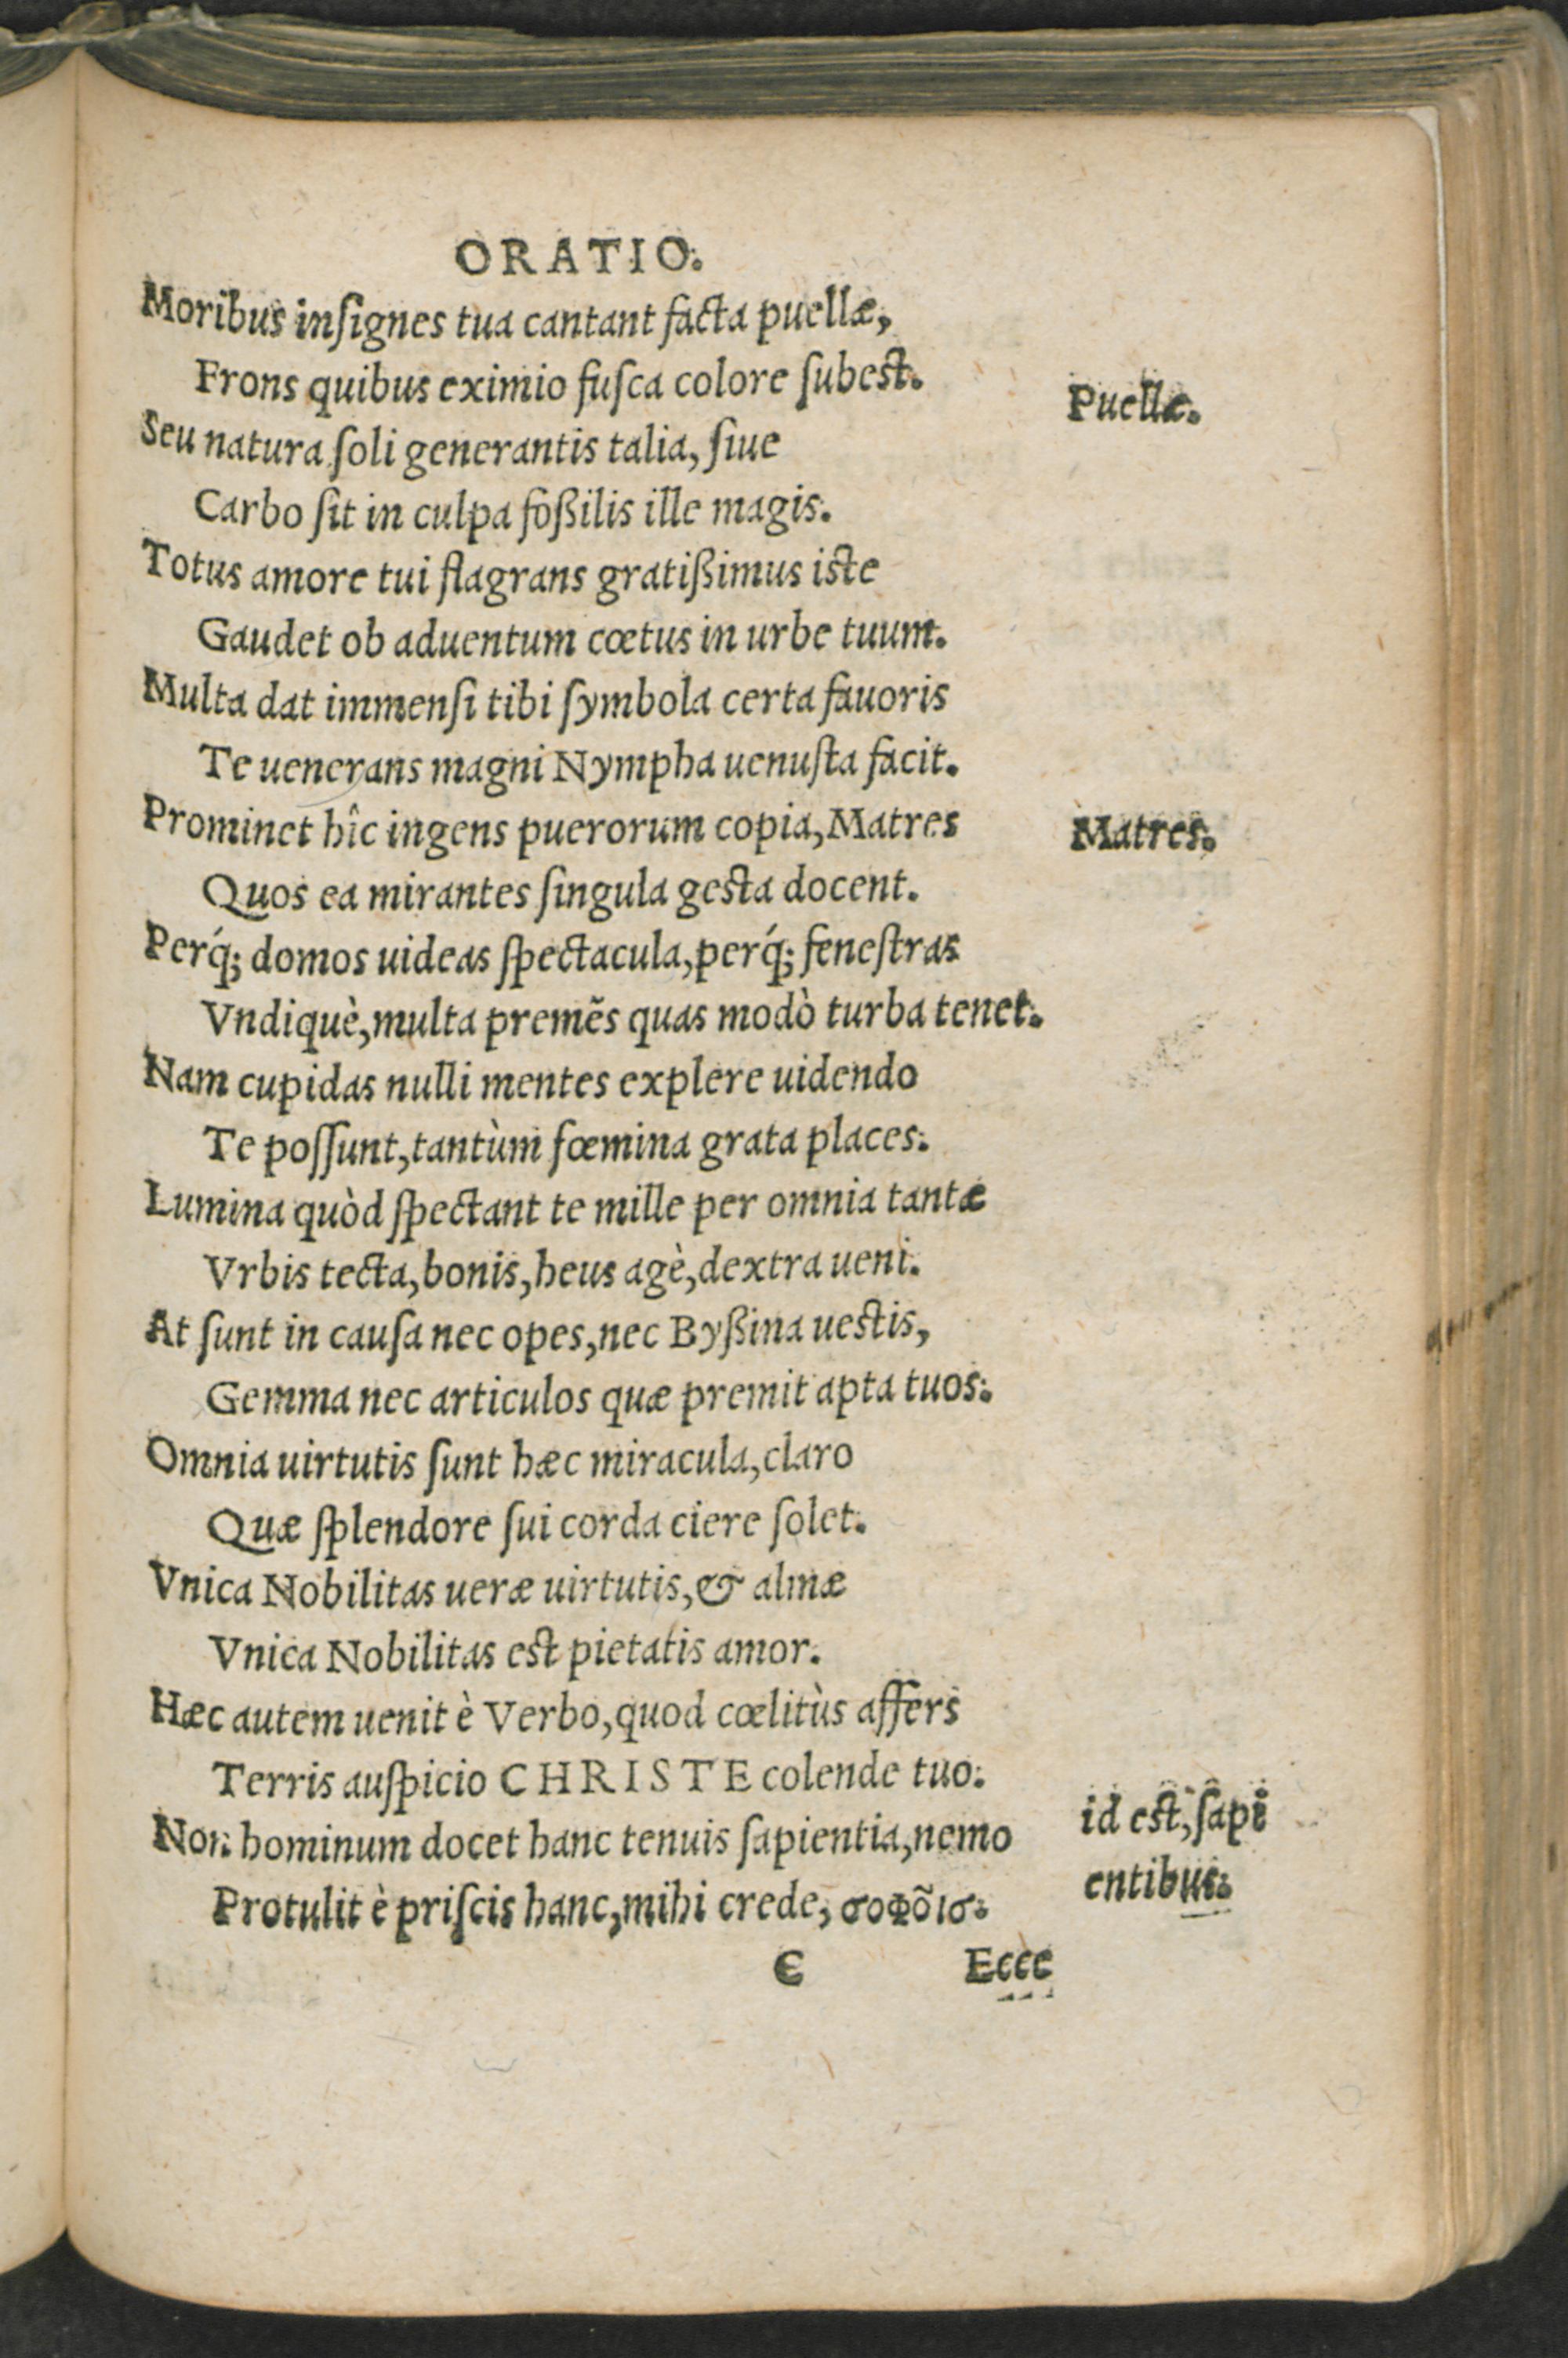 ORATIO.
Moribus inſignes tua cantant facta puellæ,
Frons quibus eximio fuſca colore ſubest.
Puellæ.
Seu natura ſoli generantis talia, ſiue
Carbo ſit in culpa foßilis ille magis.
Totus amore tui flagrans gratißimus iste
Gaudet ob aduentum cœtus in urbe tuum.
Multa dat immenſi tibi ſymbola certa fauoris
Te uenerans magni Nympha uenuſta facit.
Prominet hîc ingens puerorum copia, Matres
Matres.
Quos ea mirantes ſingula gesta docent.
Perq́; domos uideas ſpectacula, perq́; feneſtras
Vndiquè, multa premẽs quas modò turba tenet.
Nam cupidas nulli mentes explere uidendo
Te poſſunt, tantùm fœmina grata places.
Lumina quòd ſpectant te mille per omnia tantæ
Vrbis tecta, bonis, heus agè, dextra ueni.
At ſunt in cauſa nec opes, nec Byßina uestis,
Gemma nec articulos quæ premit apta tuos.
Omnia uirtutis ſunt hæc miracula, claro
Quæ ſplendore ſui corda ciere ſolet.
Vnica Nobilitas ueræ uirtutis, & almæ
Vnica Nobilitas est pietatis amor.
Hæc autem uenit è Verbo, quod cœlitùs affers
Terris auſpicio CHRISTE colende tuo.
Non hominum docet hanc tenuis ſapientia, nemo
id est, ſapi
Protulit è priſcis hanc, mihi crede, σοφο͂ισ.
entibus.
E Ecce